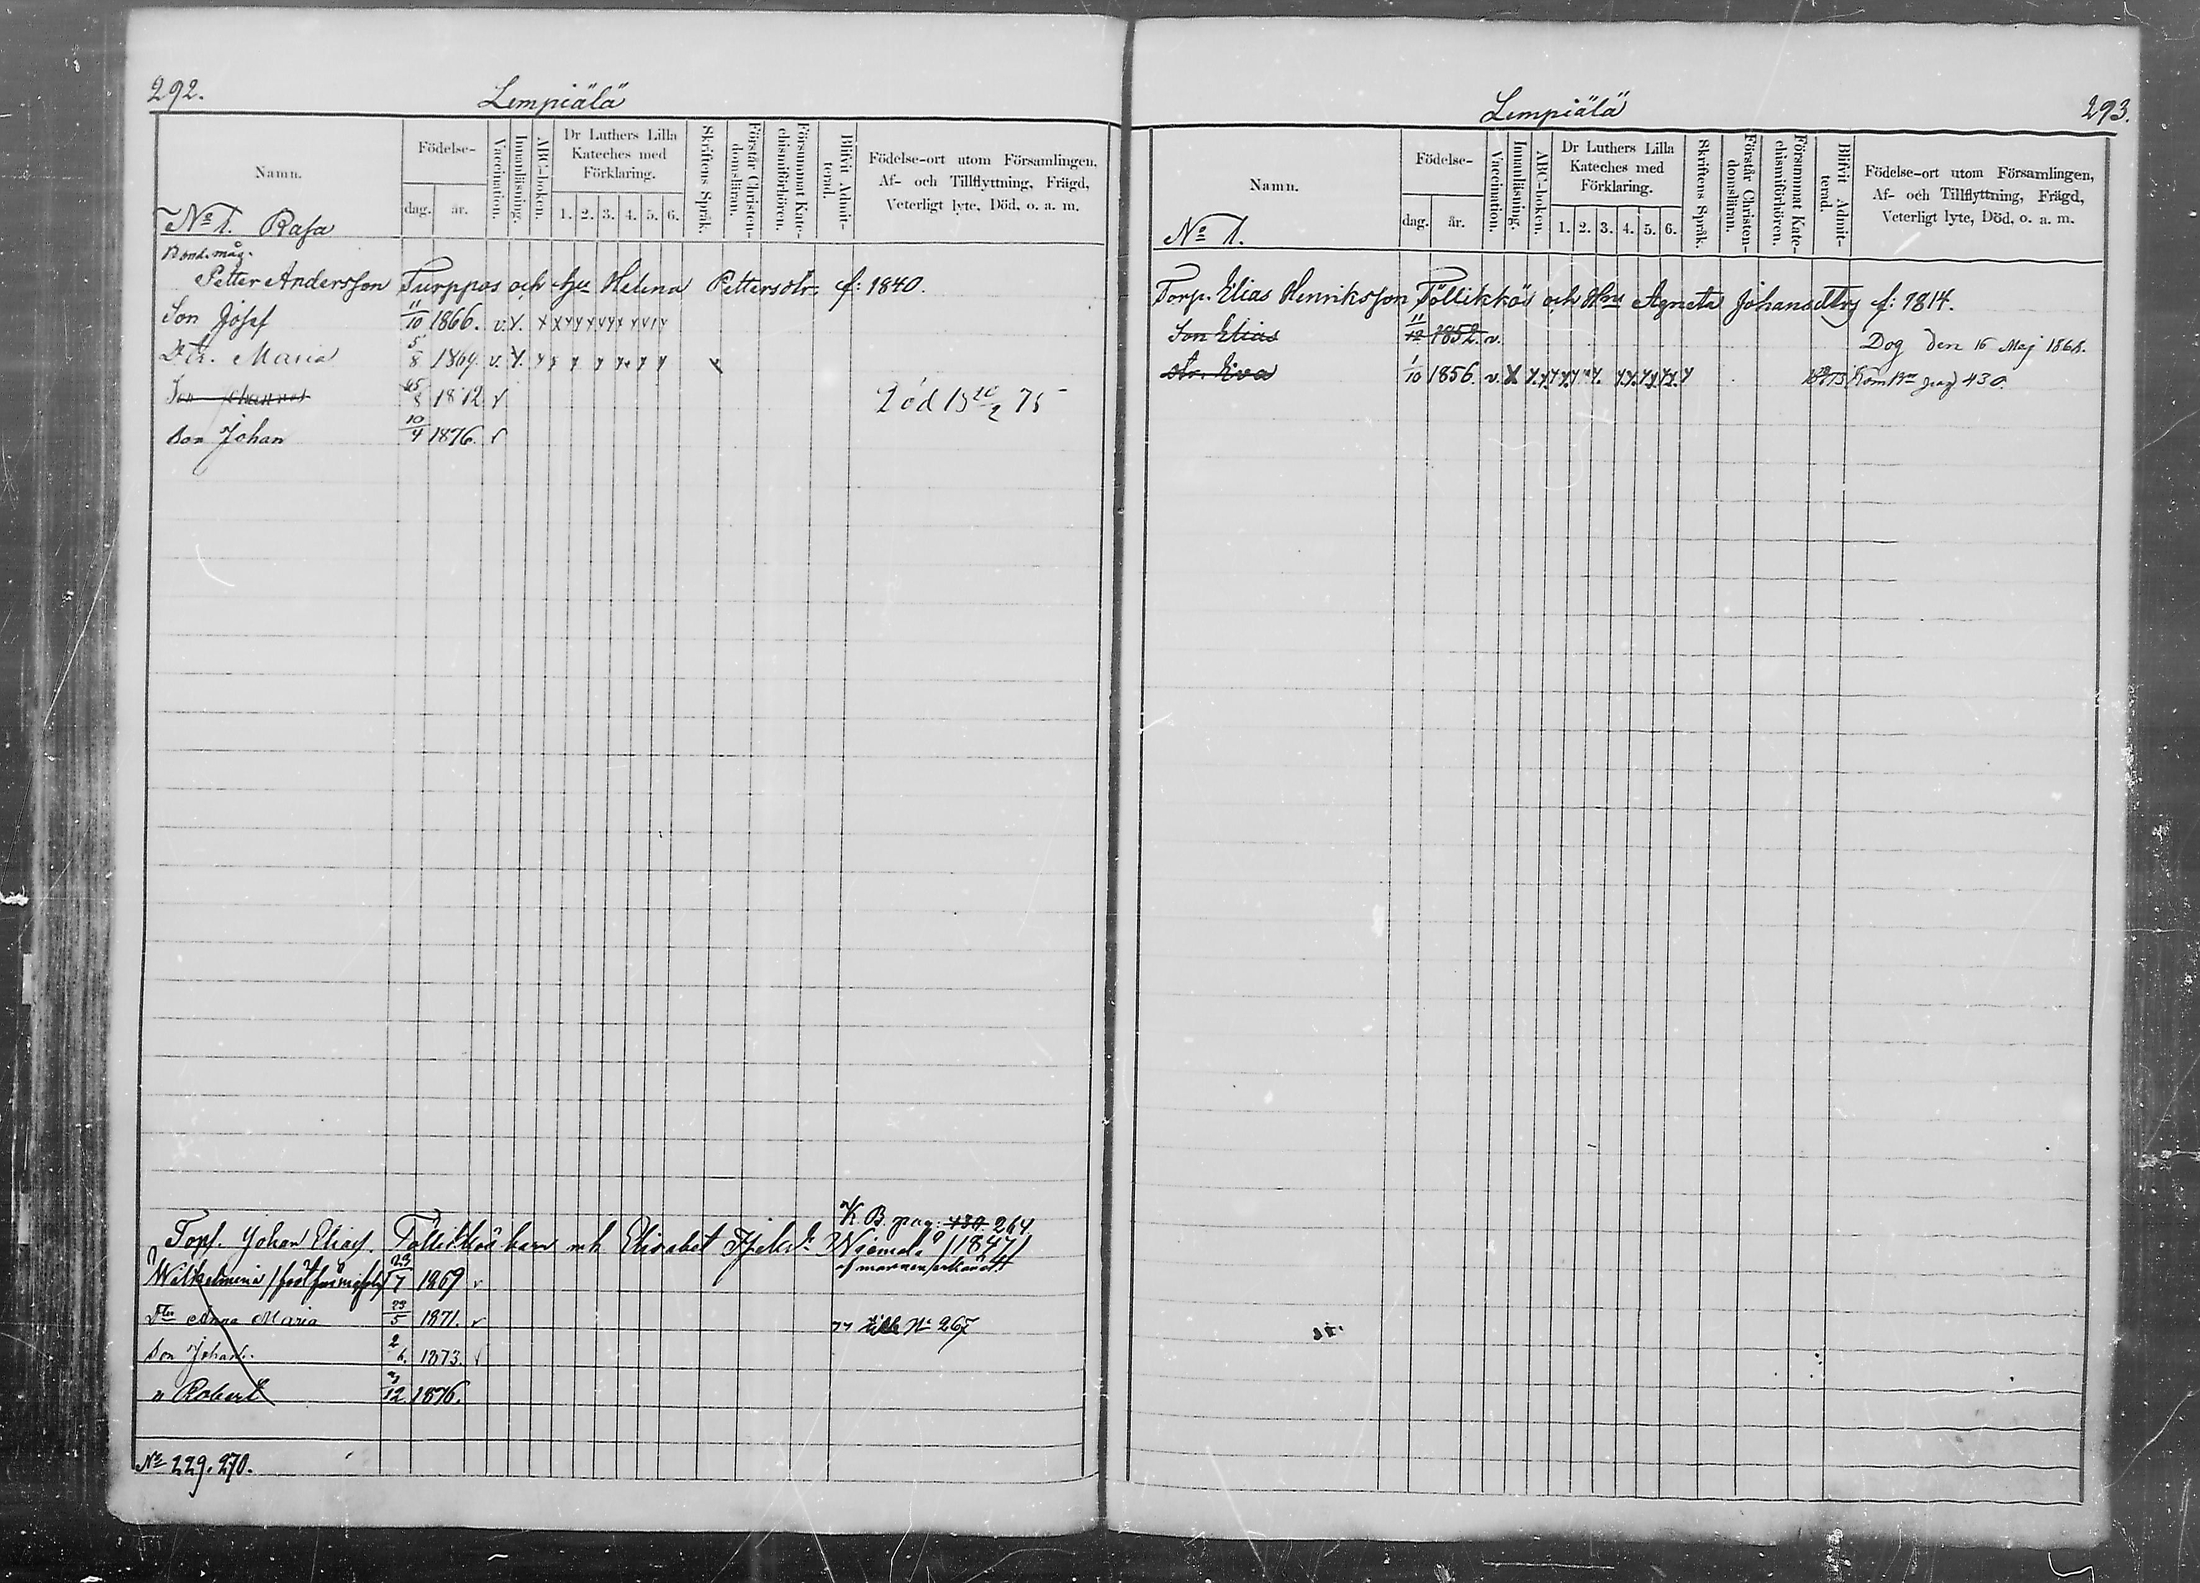 292.
Lempiälä
Namn.
Födelse-
dag.
år.
Vaccination.
Innanläsning.
ABC-boken.
Dr Luthers Lilla
Kateches med
Förklaring.
1. 2. 3. 4. 5. 6.
Skriftens Språk.
Förstår Christen-
domsläran.
Försummat Kate-
chismiförhören.
Blifvit Admit-
terad.
Födelse-ort utom Församlingen,
Af- och Tillflyttning, Frägd,
Veterligt lyte, Död, o. a. m.
No 1. Rasa
Bond. måg.
Petter Andersson Turppas och hu Helena Pettersdtr f: 1840.
Son Josef 11/10 1866. v.
Dtr. Maria 5/8 1869. v.
Son Johannes 1872 v Död 75
Son Johan 10/4 1876. v
K. B. pag: 430 264
Johan Eliass. Tollikkö Elisabet
1869 v
Dtr Anna Maria 23/5 1871. v No 267
Son Johan 2/6. 1873. v
" Robert /12 1876.
No 229. 270.
293.
Lempiälä
Namn.
Födelse-
dag.
år.
Vaccination.
Innanläsning.
ABC-boken.
Dr Luthers Lilla
Kateches med
Förklaring.
1. 2. 3. 4. 5. 6.
Skriftens Språk.
Förstår Christen-
domsläran.
Försummat Kate-
chismiförhören.
Blifvit Admit-
terad.
Födelse-ort utom Församlingen,
Af- och Tillflyttning, Frägd,
Veterligt lyte, Död, o. a. m.
No 1.
Torp. Elias Henriksson Tollikkö och Hru Agneta Johansdtr f: 1814.
Son Elias 11/12 1852. v. Dog den 16 Maj 1868.
dtr. Eva 1/10 1856. v. pag 430.